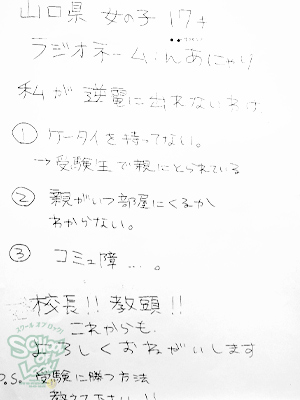 山口県 女の子 17才
ラジオネーム:んあにゃり
私が逆電に出れないわけ
① ケータイを持ってない。
→受験生で親にとられている
② 親がいつ部屋にくるか
わからない。
③ コミュ障...。
校長!! 教頭!!
これからも、
よろしくおねがいします
P.S. 受験に勝つ方法
教えて下さい!!